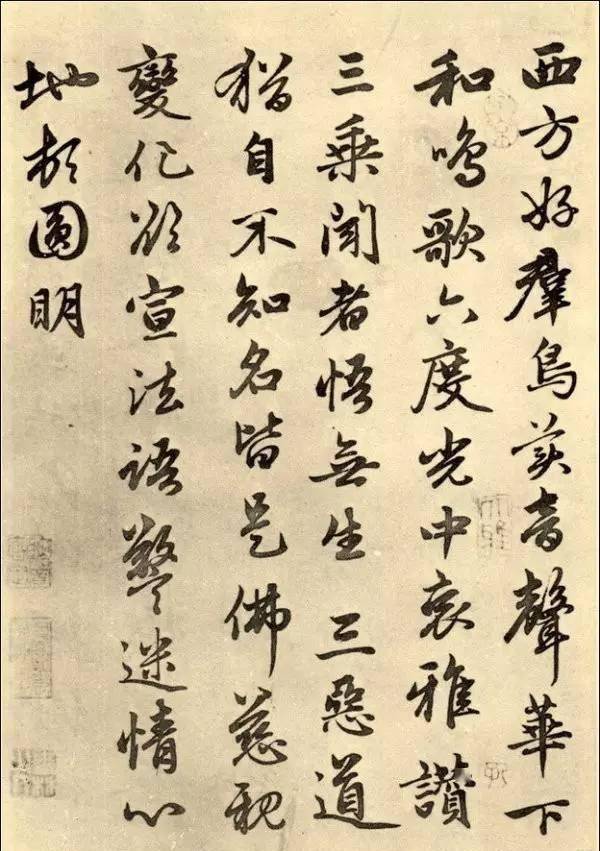 西方好群鳥美音聲華下
和鳴歌六度光中哀雅讚
三乘聞者悟無生三惡道
猶自不知名皆是佛慈親
變化欲宣法語警迷情心
地頓圓明